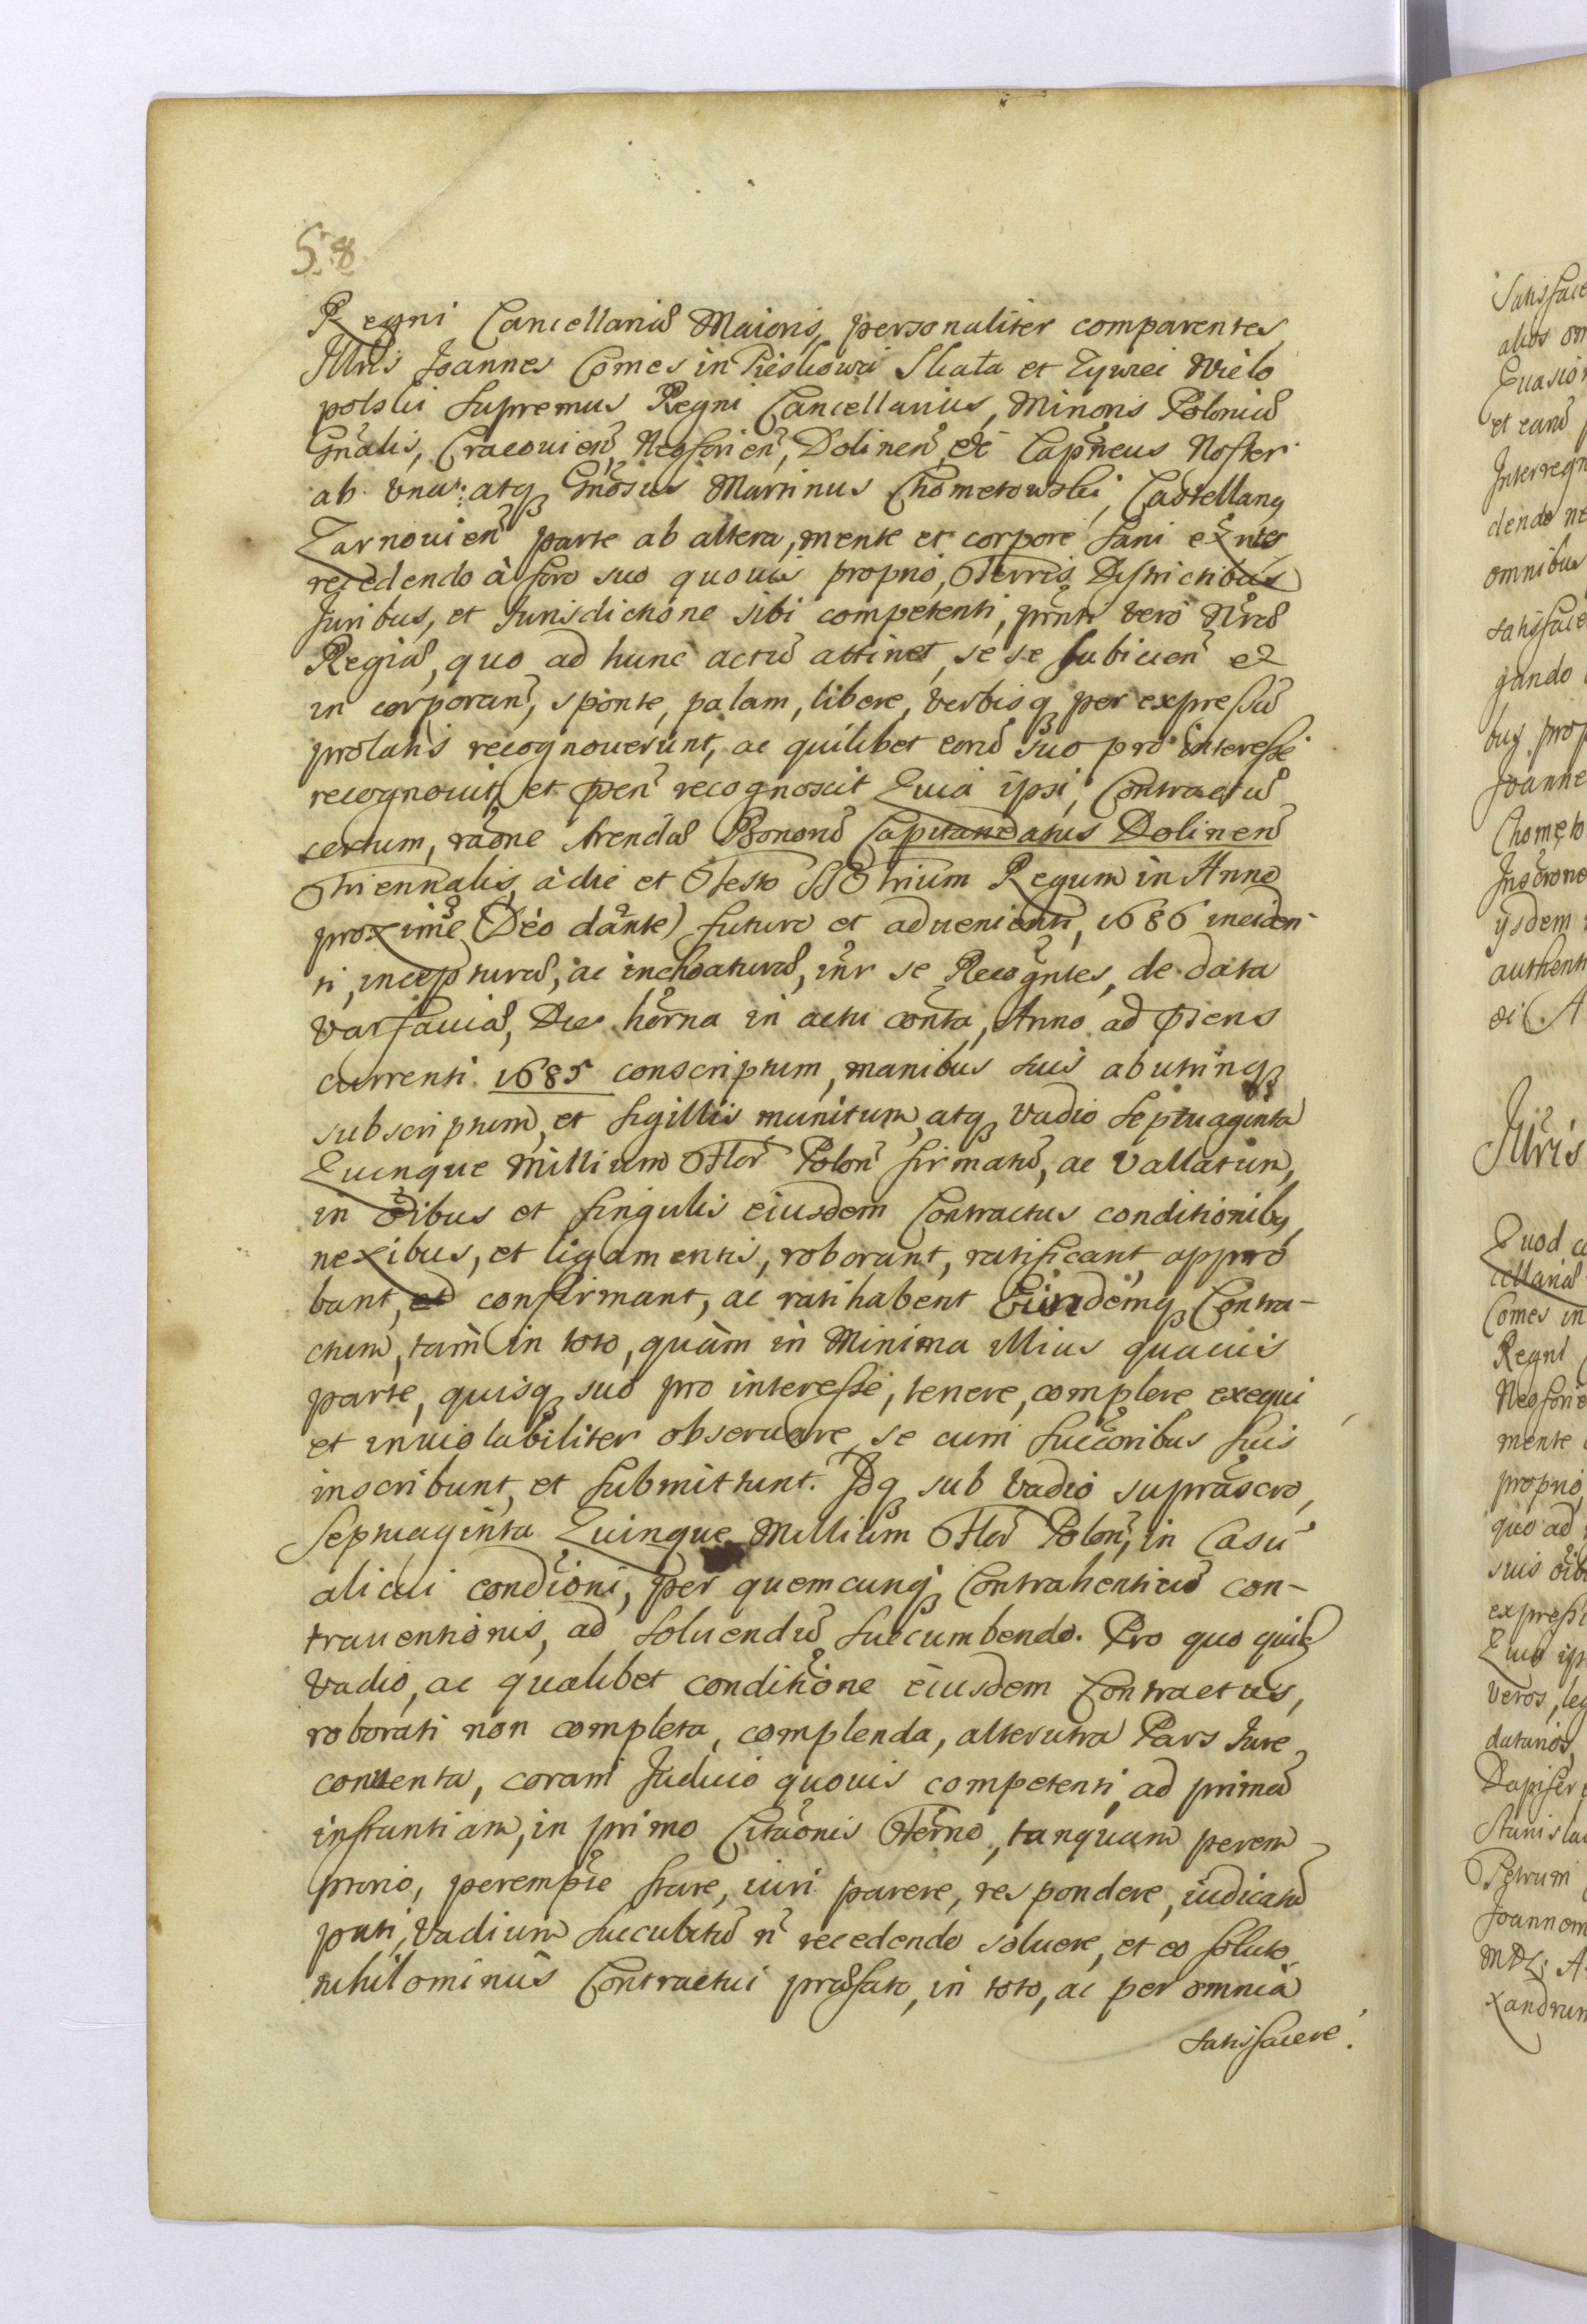 58.
Regni Cancellariæ Maioris, personaliter comparentes
Illris Joannes Comes in Pieskowa Skała et Zywiei Wielo
polski Supremus Regni Cancellarius, Minoris Poloniæ
Gnãlis, Cracouien̄, Neoforien̄, Dolinen̄ etc̄ Capn̄eus Noster
ab vna: atq̃ Gn̄osus Martinus Chometowski, Castellang
Zarnouien̄ parte ab altera, mente et corpore sani exn̄tes
recedendo à foro suo quouis proprio, Terris, Districtibus
Juribus, et Jurisdictione sibi competenti, prn̄ti vero Nræ
Regiæ, quo ad hunc actū attinet, se se subiicien̄ et
in corporan̄, sponte, palam, libere, verbisq̃ per expressū
prolatis recognouerunt, ac quilibet eorū suo pro interesse
recognouit, et pn̄en̄ recognoscit Quia ipsi, Contractū
certum, raõne Arendæ Bonorū Capitaneatus Dolinen̄
Triennalis, à die et Festo SS Trium Regum in Anno
proximè (Deo dante) futuro et aduenienti, 1686 inciden
ti, incepturæ, ac inchoaturæ, inr̄ se Recogn̄tes, de data
Varsauiæ, Die horn̄a in actu conn̄ta, Anno ad pn̄ens
currenti 1685 conscriptum, manibus suis ab utrinq̃
subscriptum, et sigillis munitum, atq̃ vadio Septuaginta
Quinque Millium Flor̄ Polon̄ firmatū, ac vallatum,
in oībus et singulis eiusdem Contractus conditionibg,
nexibus, et ligamentis, roborant, ratificant, appro
bant, confirmant, ac ratihabent Eundemq̃ Contra-
ctum, tam in toto, quàm in Minima illius quauis
parte, quisq̃ suo pro interesse, tenere, complere exequi
et inuiolabiliter obseruare, se cum succ̄oribus suis
inscribunt, et submittunt. Idq̃ sub vadio suprascr̄o,
Septuaginta Quinque Millium Flor̄ Polon̄, in Casu
alicui condi͠oni, per quemcunq̃ Contrahentiū con-
trauentionis, ad soluendū succumbendo. Pro quo quidē
vadio, ac qualibet conditione eiusdem Contractus,
roborati non completa, complenda, alterutra Pars Jure
conuenta, coram Judicio quouis competenti, ad primā
instantiam, in primo Cita͠onis Term̄o, tanquam perem
ptorio, perempt̄ie stare, iuri parere, respondere, iudicatū
pati, vadium succubitū n̄ recedendo soluere, et eo soluto
nihilominùs Contractui præfato, in toto, ac per omnia
satisfacere.
Satisface
alios om
Euasion
et eand
Interregn
dendo ne
omnibus
satisface
gando
bus prop
Joanne
Chometo
ijsdem
authent
Illris
Quod
cellariæ
Comes in
Regni
Neoforie
mente
proprio,
quo ad
suis oīb
express
Quia ip
veros, leg
datarios,
Dapifer
Stanisla
Petrum
Joannem
xandrum